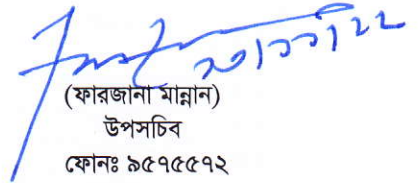 ২০/১১/২২
(ফারজানা মান্নান)
উপসচিব
ফোনঃ ৯৫৭৫৫৭২